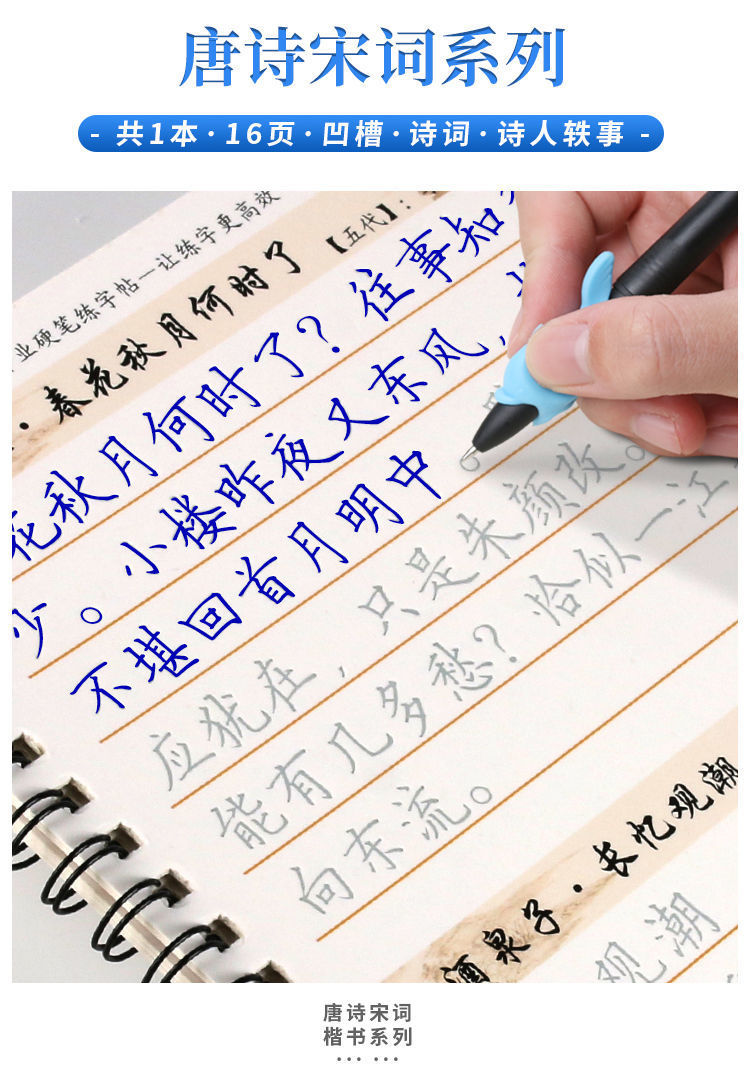 唐诗宋词系列
- 共1本·16页·凹槽·诗词·诗人轶事 -
业硬笔练字帖—让练字更高效
·春花秋月何时了 【五代】：
花秋月何时了？往事知
少。小楼昨夜又东风，
不堪回首月明中
应犹在，只是朱颜改。
能有几多愁？恰似一江
向东流。
酒泉子·长忆观潮
观潮
唐诗宋词
楷书系列
··· ···